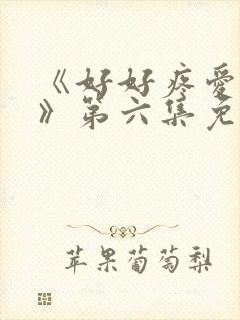 《好好疼爱
》第六集免
苹果葡萄梨